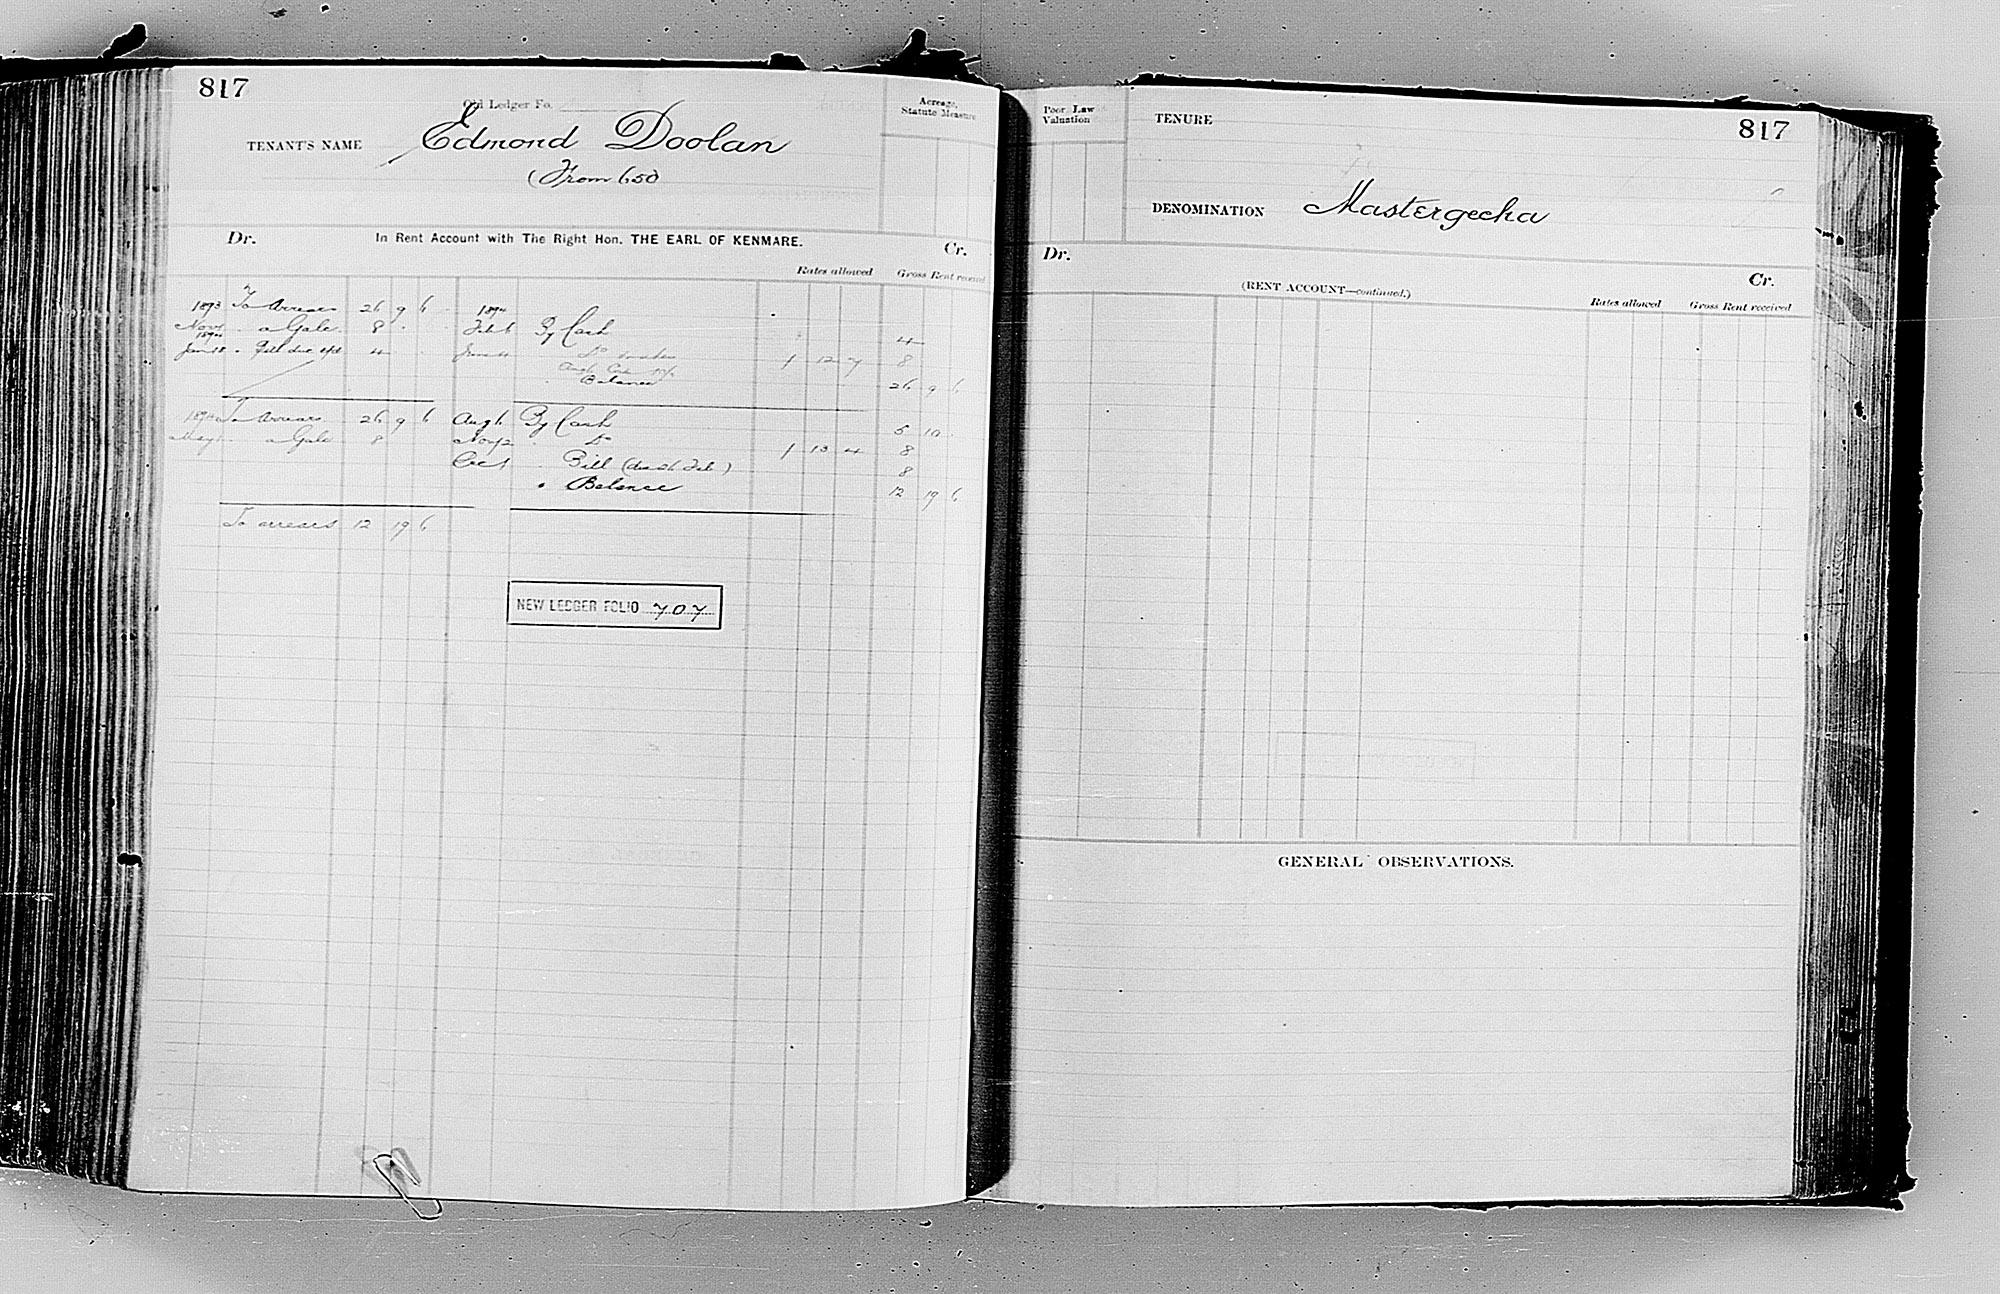 817
Old Ledger Fo.
TENANT'S NAME Edmond Doolan
(From 650
Acreage, Statute Measure
Dr. In Rent Account with The Right Hon. THE EARL OF KENMARE. Cr.
Rates allowed Gross Rent received
1893 To Arrears 26 9 6 1894
Novr " a Gale 8 Feb 6 By Cash 4
1894
Jany 18 " Bill due 4 June 11 Do 1 12 7 8
Balance 26 9 6
1894 To Arrears 26 9 6 Aug 6 By Cash 5 10
May " a Gale 8 Nov 12 " Do 1 13 4 8
Dec 1 " Bill (due 26 Feb) 8
" Balance 12 19 6
To arrears 12 19 6
NEW LEDGER FOLIO 707
Poor Law Valuation
TENURE
817
DENOMINATION Mastergeeha
Dr.
Cr.
(RENT ACCOUNT—continued.)
Rates allowed Gross Rent received
GENERAL OBSERVATIONS.